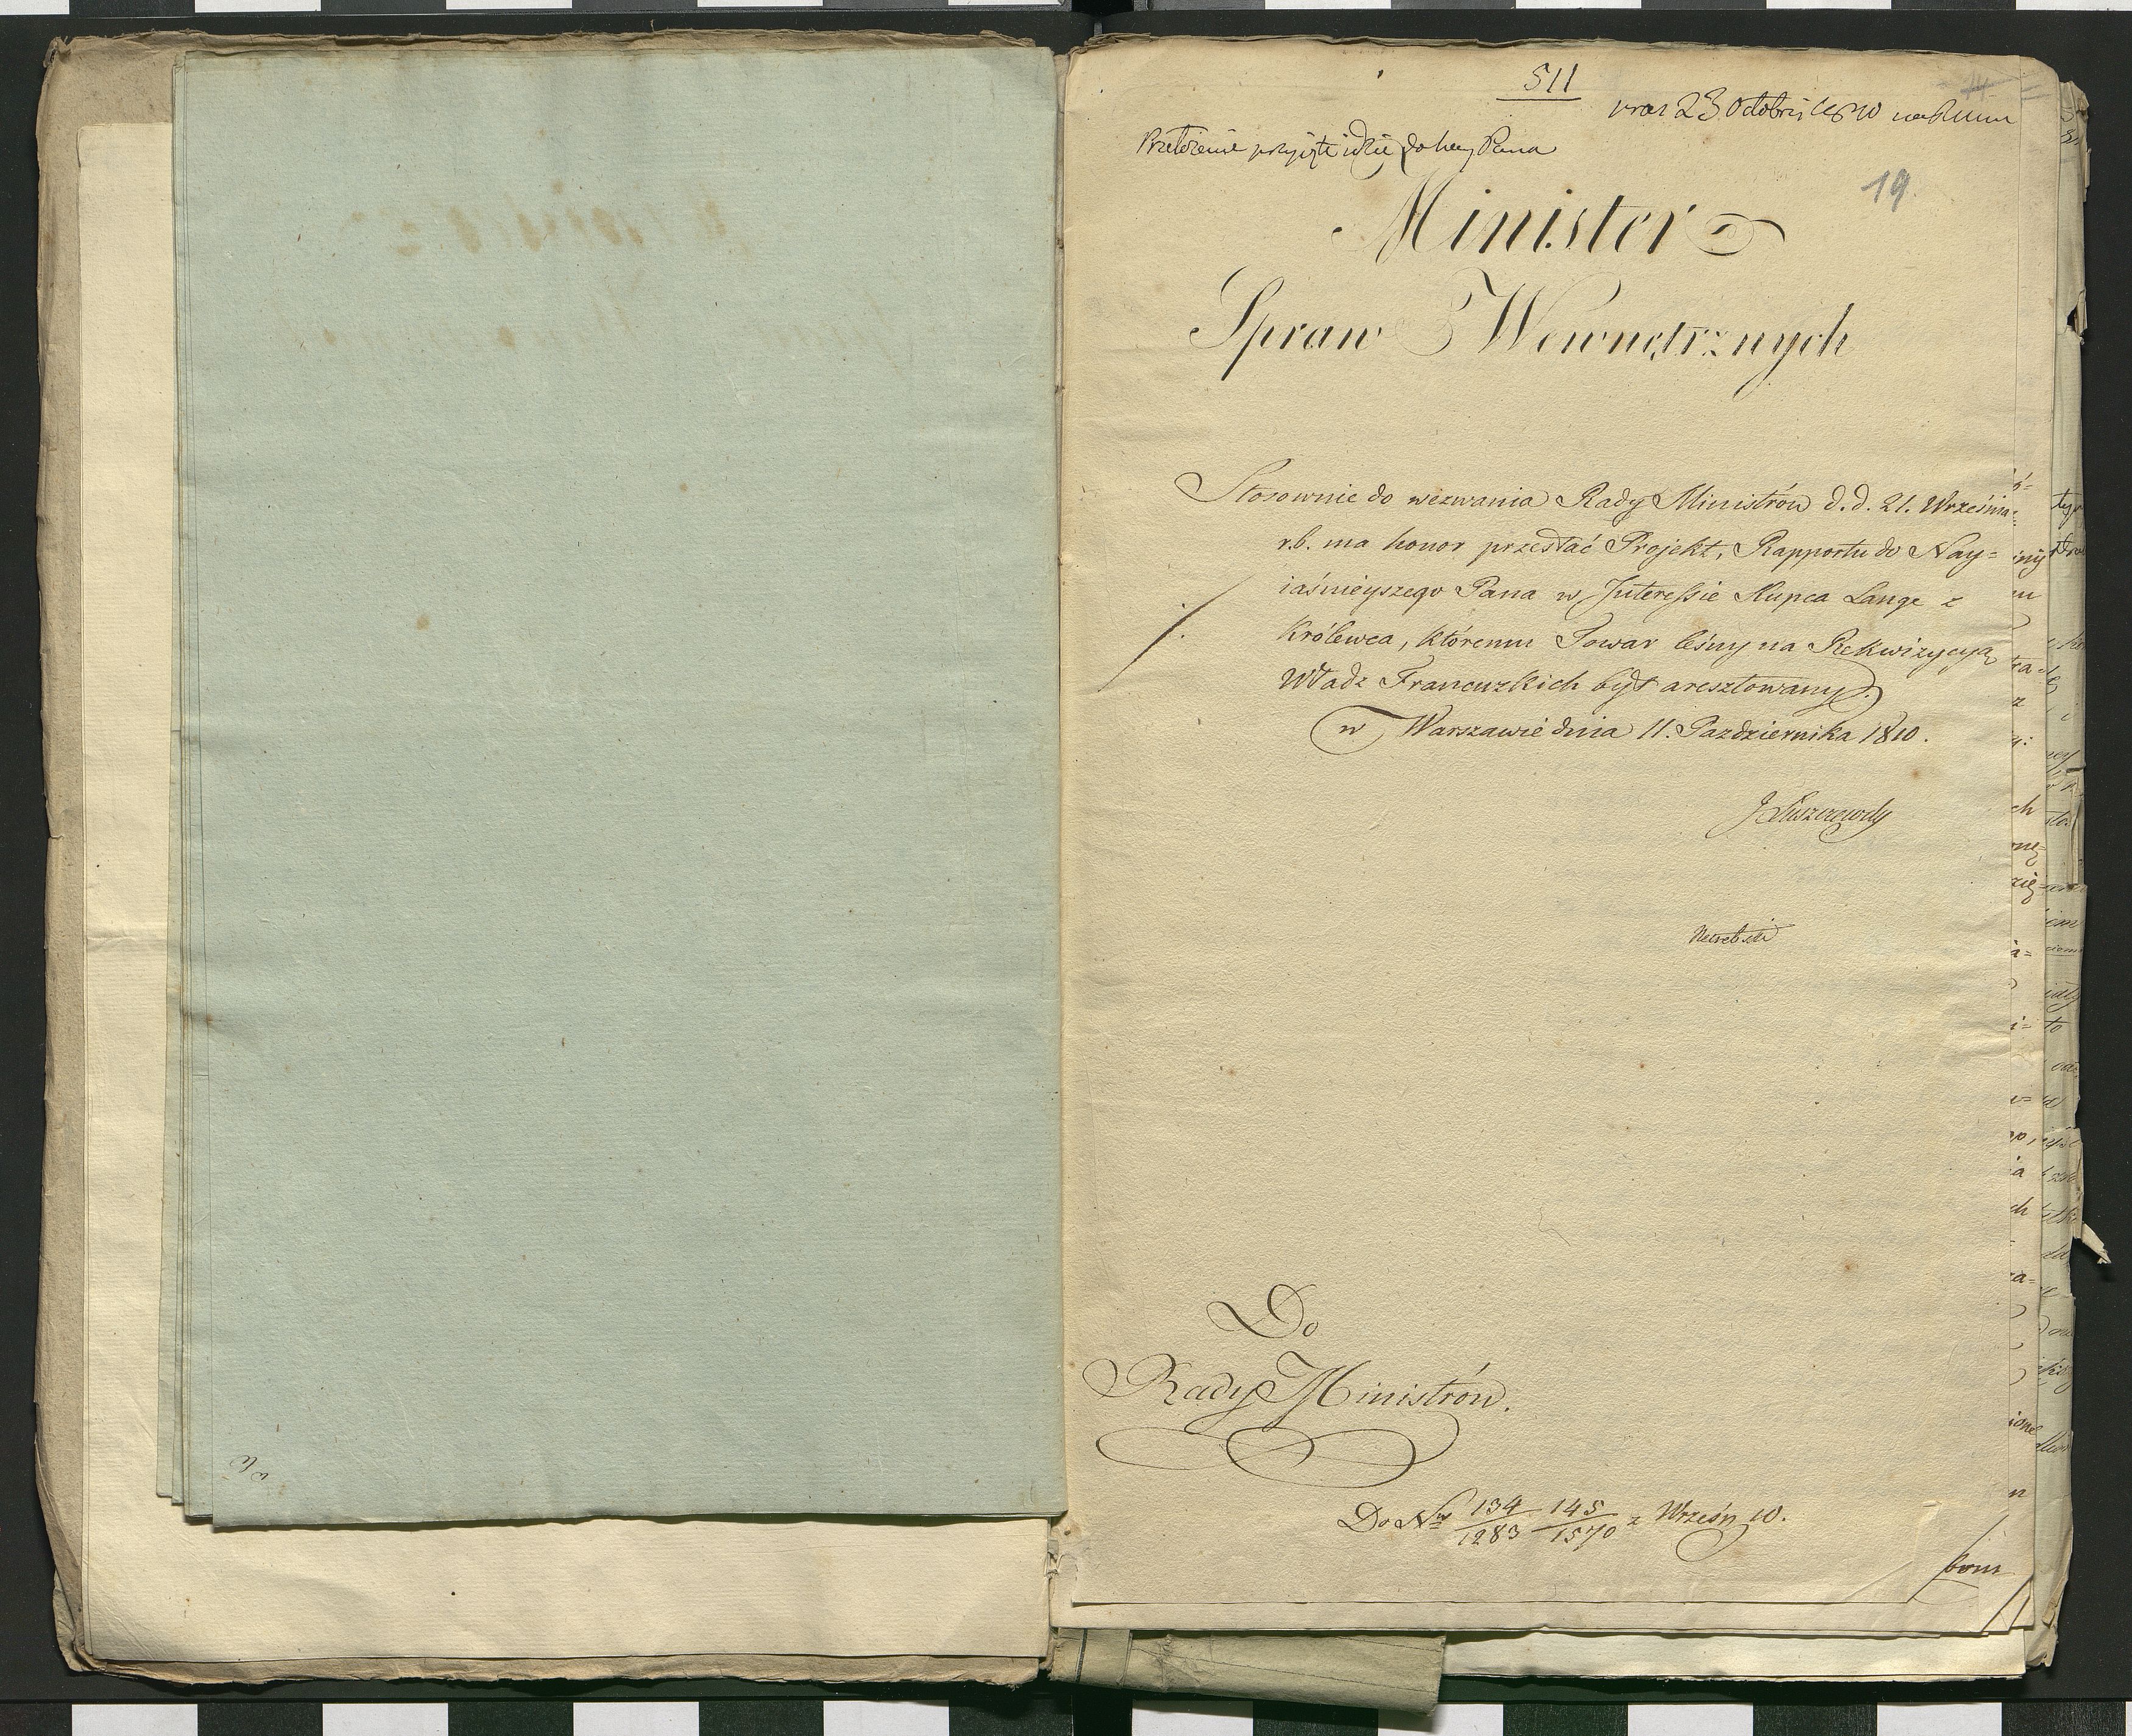 511
23 Octobris 1810
Przełożenie przyięte idzie do Pana
19.
Minister
Spraw Wewnętrznych
Stosownie do wezwania Rady Ministrów d. d. 21. Września
r.b. ma honor przesłać Projekt, Rapportu do Nay=
iaśnieyszego Pana w Interessie Kupca Lange z
Królewca, któremu Towar leśny na Rekwizycyą
Władz Francuzkich był aresztowany.
w Warszawie dnia 11. Pazdziernika 1810.
J Łuszczewsky
Do
Rady Ministrów.
Do Nrw 134/1283 145/1570 z Wrześn 10.